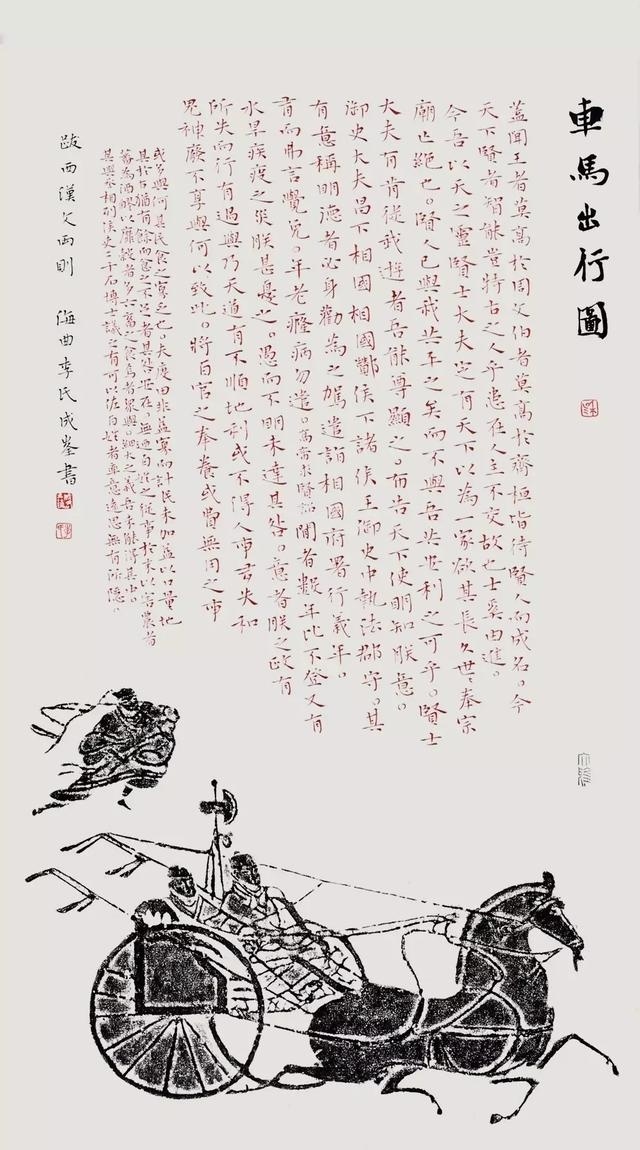 車馬出行圖
蓋聞王者莫高於周文伯者莫高於齊桓皆待賢人而成名。今
天下賢者智能豈特古之人乎患在人主不交故也士奚由進。
今吾以天之靈賢士大夫定有天下以為一家欲其長久世〻奉宗
廟亡絕也。賢人已與我共平之矣而不與吾共安利之可乎。賢士
大夫有肯從我遊者吾能尊顯之。布告天下使明知朕意。
御史大夫昌下相國相國酇侯下諸侯王御史中執法郡守。其
有意稱明德者必身勸為之駕遣詣相國府署行義年。
有而弗言覺免。年老癃病勿遣。高帝求賢詔間者數年比不登又有
水旱疾疫之災朕甚憂之。愚而不明未達其咎。意者朕之政有
所失而行有過與乃天道有不順地利或不得人事多失和
鬼神廢不享與何以致此。將百官之奉養或費無用之事
或多與何其民食之寡乏也。夫度田非益寡而計民未加益以口量地
其於古猶有餘而食之不足者其咎安在。無迺百姓之從事於末以害農者
蕃為酒醪以靡穀者多六畜之食焉者眾與。細大之義吾未能得其中。
其與丞相列侯吏二千石博士議之有可以佐百姓者率意遠思無有所隱。
跋西漢文兩則 海曲李氏成峯書